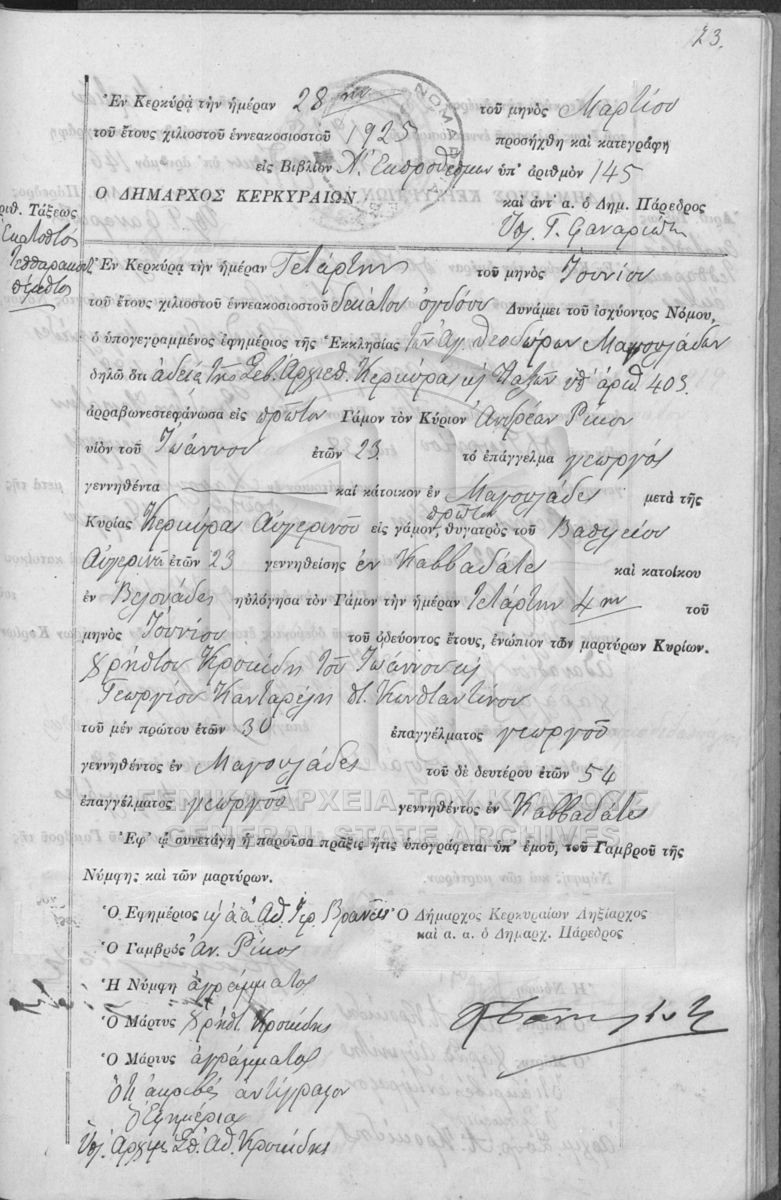 23.
Ἐν Κερκύρᾳ τὴν ἡμέραν 28ην τοῦ μηνὸς Μαρτίου
τοῦ ἔτους χιλιοστοῦ ἐννεακοσιοστοῦ 1925 προσήχθη καὶ κατεγράφη
εἰς Βιβλίον Ἐκπροθέσμων ὑπ' ἀριθμὸν 145
Ο ΔΗΜΑΡΧΟΣ ΚΕΡΚΥΡΑΙΩΝ
καὶ ἀντ' α. ὁ Δημ. Πάρεδρος
Ὑπ. Γ. Φαναριώτη
ριθ. Τάξεως
Ἑκατοστός
τεσσαρακοστ
πέμπτος
Ἐν Κερκύρᾳ τὴν ἡμέραν Τετάρτην τοῦ μηνὸς Ἰουνίου
τοῦ ἔτους χιλιοστοῦ ἐννεακοσιοστοῦ δεκάτου ὀγδόου Δυνάμει τοῦ ἰσχύοντος Νόμου,
ὁ ὑπογεγραμμένος ἐφημέριος τῆς Ἐκκλησίας τῶν Ἁγ. Θεοδώρων Μαγουλάδων
δηλῶ ὅτι ἀδείᾳ τῆς Σεβ. Ἀρχιεπ. Κερκύρας κ Παξῶν ὑπ' ἀριθ. 403.
ἀρραβωνεστεφάνωσα εἰς πρῶτον Γάμον τὸν Κύριον Ἀνδρέαν Ρίκον
υἱὸν τοῦ Ἰωάννου ἐτῶν 23 τὸ ἐπάγγελμα γεωργός
γεννηθέντα καὶ κάτοικον ἐν Μαγουλάδες μετὰ τῆς
Κυρίας Κερκύρας Αὐγερινοῦ εἰς πρῶτον γάμον, θυγατρὸς τοῦ Βασιλείου
Αὐγερινοῦ ἐτῶν 23 γεννηθείσης ἐν Καββαδάτες καὶ κατοίκου
ἐν Βελονάδες ηὐλόγησα τὸν Γάμον τὴν ἡμέραν Τετάρτην 4ην τοῦ
μηνὸς Ἰουνίου τοῦ ὁδεύοντος ἔτους, ἐνώπιον τῶν μαρτύρων Κυρίων.
Χρήστου Κροκίδη τοῦ Ἰωάννου καὶ
Γεωργίου Κανταρέλη τ. Κωνσταντίνου
τοῦ μὲν πρώτου ἐτῶν 30 ἐπαγγέλματος γεωργοῦ
γεννηθέντος ἐν Μαγουλάδες τοῦ δὲ δευτέρου ἐτῶν 54
ἐπαγγέλματος γεωργοῦ γεννηθέντος ἐν Καββαδάτες
ΓΕΝΙΚΑ ΑΡΧΕΙΑ ΤΟΥ ΚΡΑΤΟΥΣ
GENERAL STATE ARCHIVES
Ἐφ' ᾧ συνετάγη ἡ παροῦσα πρᾶξις ἥτις ὑπογράφεται ὑπ' ἐμοῦ, τοῦ Γαμβροῦ τῆς
Νύμφης καὶ τῶν μαρτύρων.
Ὁ Ἐφημέριος
Ὁ Δήμαρχος Κερκυραίων Ληξίαρχος
καὶ α. α. ὁ Δημαρχ. Πάρεδρος
Ὁ Γαμβρός Ἀν. Ρίκος
Ἡ Νύμφη ἀγράμματος
Ὁ Μάρτυς Χρῆστ. Κροκίδης
Ὁ Μάρτυς ἀγράμματος
Ὅτι ἀκριβὲς ἀντίγραφον
Ὁ Ἐφημέριος
Ὑπ. Ἀρχιμ. Σπ. Ἀθ. Κροκίδης